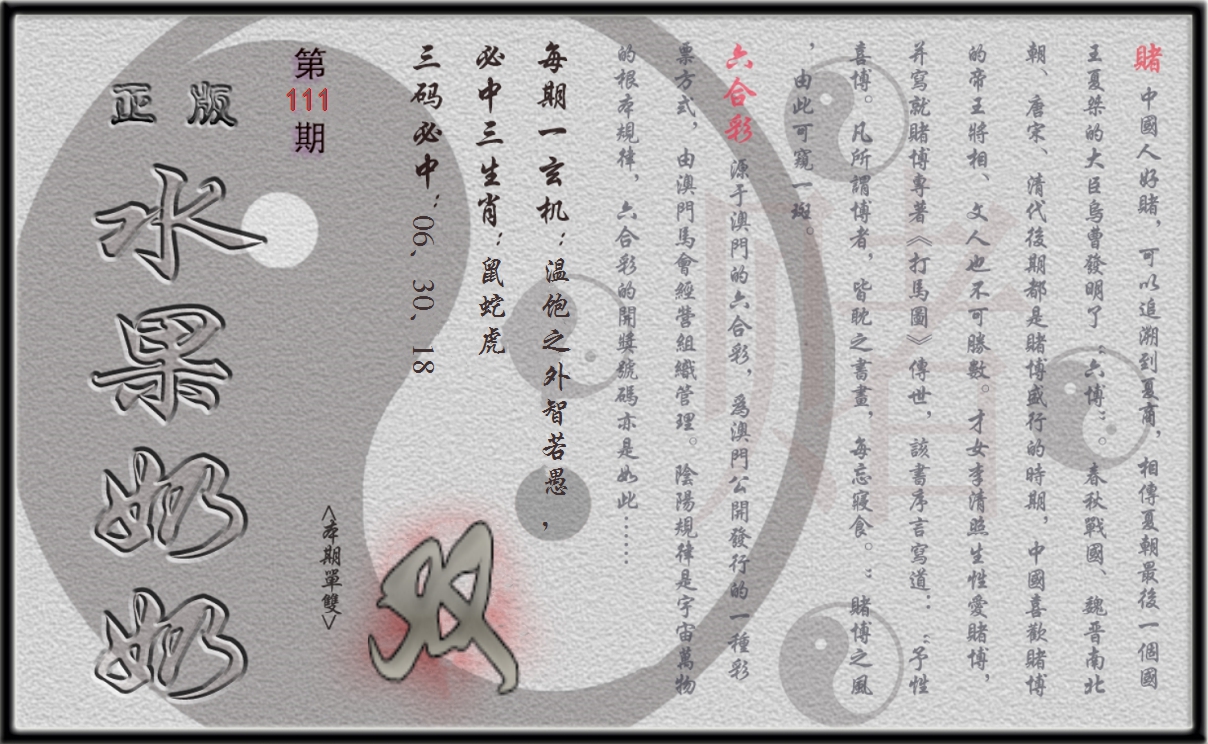 賭 中國人好賭，可以追溯到夏商，相傳夏朝最後一個國
王夏桀的大臣烏曹發明了“六博”。春秋戰國、魏晉南北
朝、唐宋、清代後期都是賭博盛行的時期，中國喜歡賭博
的帝王將相、文人也不可勝數。才女李清照生性愛賭博，
并寫就賭博專著《打馬圖》傳世，該書序言寫道：“予性
喜博。凡所謂博者，皆耽之書畫，每忘寢食。：賭博之風
，由此可窺一斑。
六合彩 源于澳門的六合彩，爲澳門公開發行的一種彩
票方式，由澳門馬會經營組織管理。陰陽規律是宇宙萬物
的根本規律，六合彩的開獎號碼亦是如此……
每期一玄机：温飽之外智若愚，
必中三生肖：鼠蛇虎
三码必中：06、30、18
双
<本期單雙>
第111期
正版
水果奶奶
赌